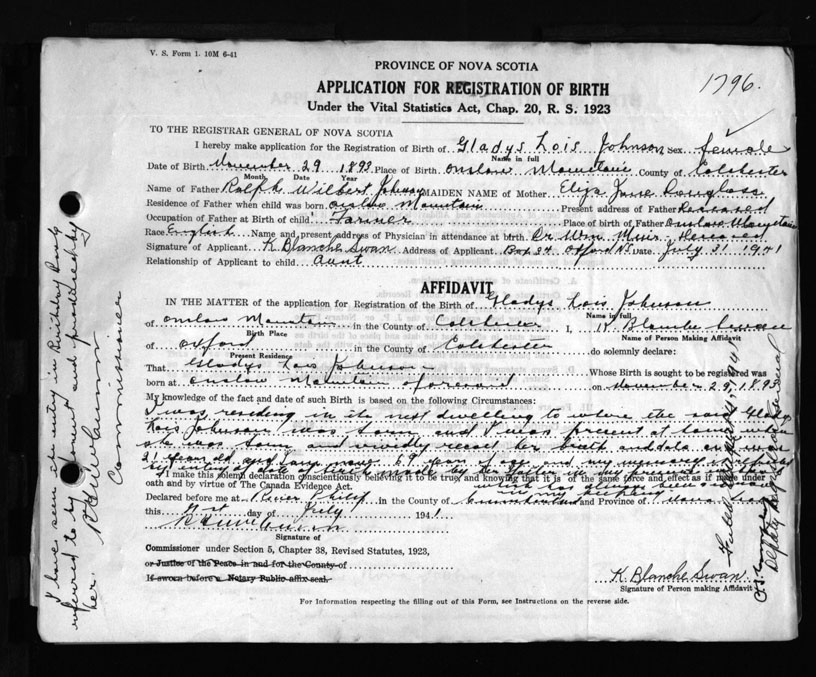 V. S. Form 1. 10M 6-41
PROVINCE OF NOVA SCOTIA
1796.
APPLICATION FOR REGISTRATION OF BIRTH
Under the Vital Statistics Act, Chap. 20, R. S. 1923
TO THE REGISTRAR GENERAL OF NOVA SCOTIA
I hereby make application for the Registration of Birth of Gladys Lois Johnson Sex female
Name in full
Date of Birth November 29 1893 Place of Birth Onslow Mountain County of Colchester
Month Date Year
Name of Father Rolph Wilbert Johnson MAIDEN NAME of Mother Eliza Jane Douglas
Residence of Father when child was born onslow Mountain Present address of Father Deceased
Occupation of Father at Birth of child Farmer Place of birth of Father Onslow Mountain
Race English Name and present address of Physician in attendance at birth Dr Wm Muir Deceased
Signature of Applicant K Blanche Swan Address of Applicant Box 34 Oxford NS Date July 31 1941
Relationship of Applicant to child Aunt
AFFIDAVIT
IN THE MATTER of the application for Registration of the Birth of Gladys Lois Johnson
Name in full
of onslow Mountain in the County of Colchester I, K Blanche Swan
Birth Place Name of Person Making Affidavit
of oxford in the County of Colchester do solemnly declare:
Present Residence
That Gladys Lois Johnson Whose Birth is sought to be registered was
born at onslow Mountain aforesaid on November 29, 1893
My knowledge of the fact and date of such Birth is based on the following Circumstances:
I was residing in the next dwelling to where the said Gladys
Lois Johnson was born and I was present at time when
she was born and vividly recall her birth and date
21 years old and I am now 69 years of age and my memory is
entry of date of birth made by her Father in my presence
I make this solemn declaration conscientiously believing it to be true and knowing that it is of the same force and effect as if made under
oath and by virtue of The Canada Evidence Act.
which has always been
in my keeping
Declared before me at River Philip in the County of Cumberland and Province of Nova Scotia
this 31st day of July 1941
Signature of
Commissioner under Section 5, Chapter 38, Revised Statutes, 1923,
or Justice of the Peace in and for the County of
If sworn before a Notary Public affix seal.
K. Blanche Swan
Signature of Person making Affidavit
For Information respecting the filling out of this Form, see Instructions on the reverse side.
I have seen the entry in Birthday Book
referred to by and produced by
her.
Commissioner
Deputy Registrar General